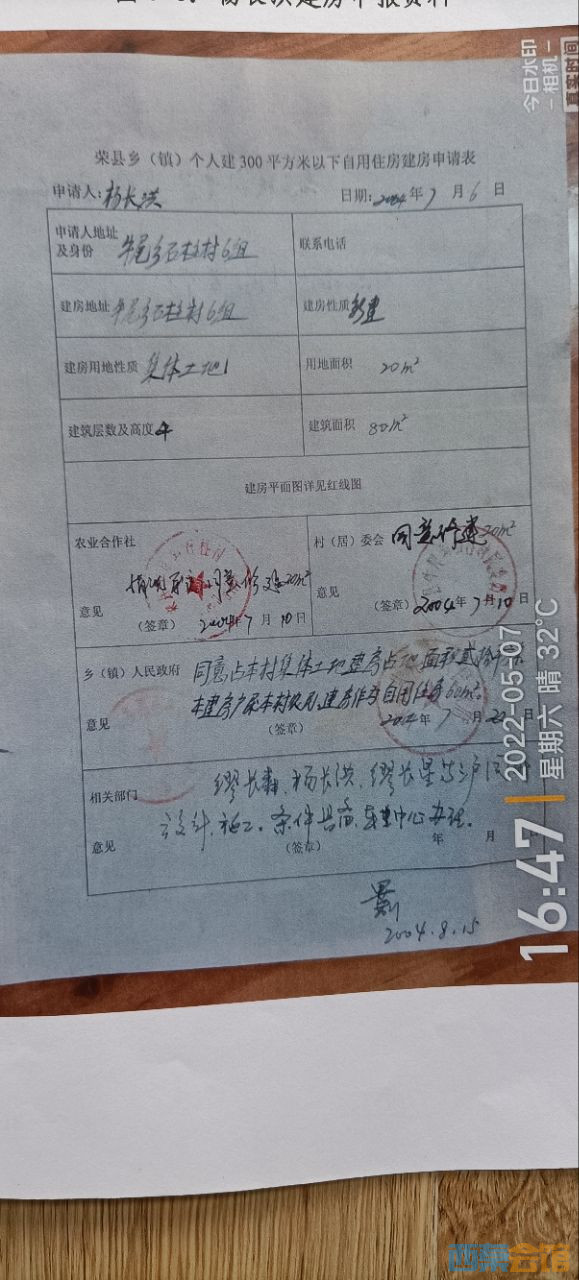 杨长洪建房申报资料
荣县乡（镇）个人建300平方米以下自用住房建房申请表
申请人：杨长洪 日期：2004年7月6日
申请人地址及身份 牛尾乡石柱村6组 联系电话
建房地址 牛尾乡石柱村6组 建房性质 新建
建房用地性质 集体土地 用地面积 20m²
建筑层数及高度 4 建筑面积 80m²
建房平面图详见红线图
农业合作社 村（居）委会 同意修建20m²
同意修建20m²
意见 意见
（签章） 2004年7月10日 （签章） 2004年7月10日
乡（镇）人民政府 同意占本村集体土地建房占地面积贰拾
本建房户系本村农民，建房作为自用住房60m²。
意见 （签章） 2004年7月22日
相关部门 缪长森、杨长洪、缪长星等三户
设计、施工。条件具备，中心办理。
意见 （签章） 年 月
2004.8.15
今日水印
-相机-
真实时间
16:47
2022-05-07
星期六 晴 32°C
西菜会馆